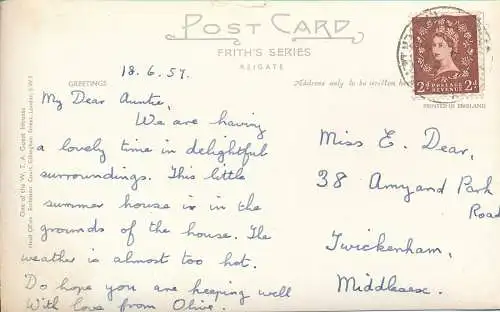 POST CARD
FRITH'S SERIES
REIGATE
GREETINGS
Address only to be written here
PRINTED IN ENGLAND
2d POSTAGE REVENUE 2d
18.6.57.
My Dear Auntie,
We are having
a lovely time in delightful
surroundings. This little
summer house is in the
grounds of the house. The
weather is almost too hot.
Do hope you are keeping well
With love from Olive.
Miss E. Dear,
38 Amyand Park
Road
Twickenham,
Middlesex.
One of the W.T.A. Guest Houses
Head Office Eccleston Court, Gillingham Street, London, S.W.1